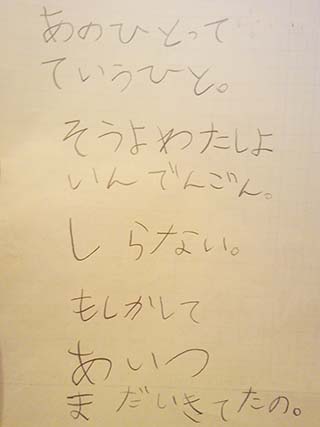 あのひとって
ていうひと。
そうよわたしよ
いんでんごん。
しらない。
もしかして
あいつ
まだいきてたの。